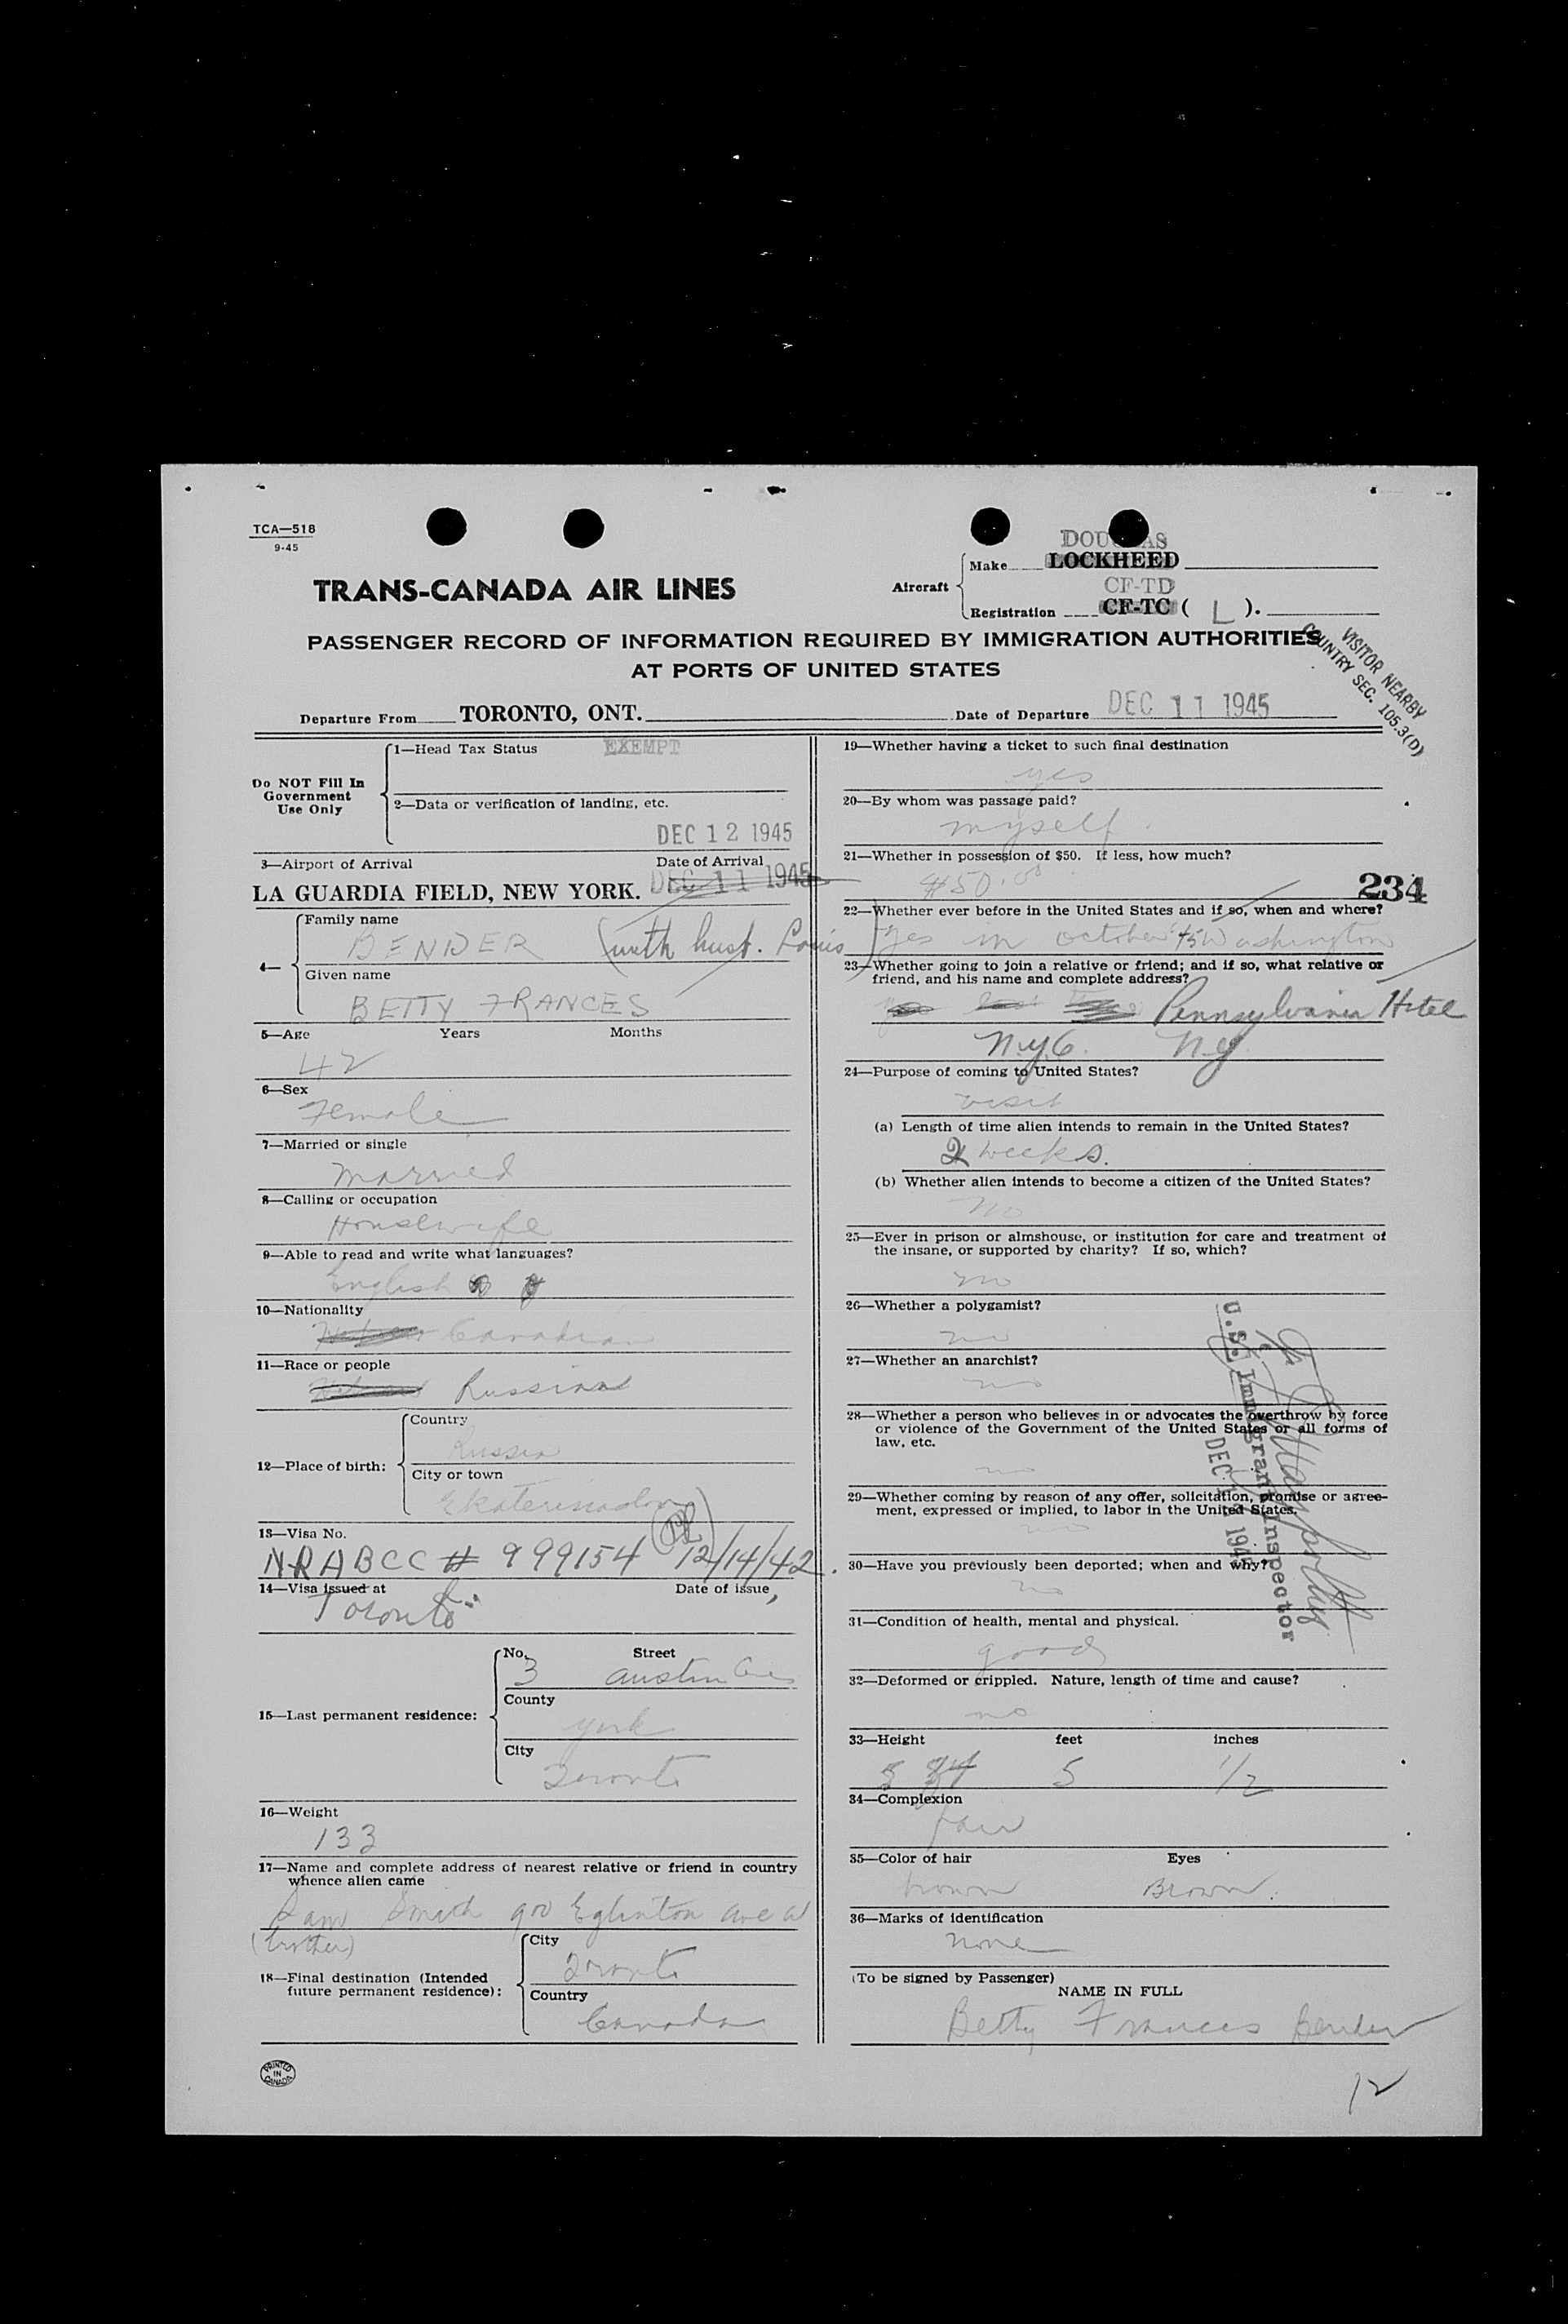 TCA—518
9-45
DOUGLAS
Aircraft
Make LOCKHEED
CF-TD
Registration CF-TC ( L ).
TRANS-CANADA AIR LINES
PASSENGER RECORD OF INFORMATION REQUIRED BY IMMIGRATION AUTHORITIES
AT PORTS OF UNITED STATES
VISITOR NEARBY
COUNTRY SEC. 105.3(D)
Departure From TORONTO, ONT. Date of Departure DEC 11 1945
Do NOT Fill In
Government
Use Only
1—Head Tax Status EXEMPT
2—Data or verification of landing, etc.
DEC 12 1945
3—Airport of Arrival Date of Arrival
LA GUARDIA FIELD, NEW YORK. DEC 11 1945
4—
Family name
BENDER (with husb. Louis)
Given name
BETTY FRANCES
5—Age Years Months
42
6—Sex
Female
7—Married or single
married
8—Calling or occupation
Housewife
9—Able to read and write what languages?
English
10—Nationality
Canadian
11—Race or people
Russian
12—Place of birth:
Country
Russia
City or town
13—Visa No.
NRABCC # 999154 12/14/42.
14—Visa issued at Date of issue
Toronto
15—Last permanent residence:
No. Street
3 Austin Cres
County
York
City
Toronto
16—Weight
133
17—Name and complete address of nearest relative or friend in country
whence alien came
Sam Smith 900 Eglinton ave W
(brother)
18—Final destination (Intended
future permanent residence):
City
Toronto
Country
Canada
PRINTED
IN
CANADA
19—Whether having a ticket to such final destination
yes
20—By whom was passage paid?
myself.
21—Whether in possession of $50. If less, how much?
$50.00
234
22—Whether ever before in the United States and if so, when and where?
yes in october 45 Washington
23—Whether going to join a relative or friend; and if so, what relative or
friend, and his name and complete address?
Pennsylvania Hotel
N.Y.C. N.Y
24—Purpose of coming to United States?
visit
(a) Length of time alien intends to remain in the United States?
2 weeks.
(b) Whether alien intends to become a citizen of the United States?
no
25—Ever in prison or almshouse, or institution for care and treatment of
the insane, or supported by charity? If so, which?
no
26—Whether a polygamist?
no
27—Whether an anarchist?
no
28—Whether a person who believes in or advocates the overthrow by force
or violence of the Government of the United States or all forms of
law, etc.
no
29—Whether coming by reason of any offer, solicitation, promise or agree-
ment, expressed or implied, to labor in the United States.
no
30—Have you previously been deported; when and why?
no
U.S. Immigrant Inspector
DEC 12 1945
31—Condition of health, mental and physical.
good
32—Deformed or crippled. Nature, length of time and cause?
no
33—Height feet inches
5 1/2
34—Complexion
fair
35—Color of hair Eyes
brown Brown.
36—Marks of identification
none
(To be signed by Passenger)
NAME IN FULL
Betty Frances Bender
12